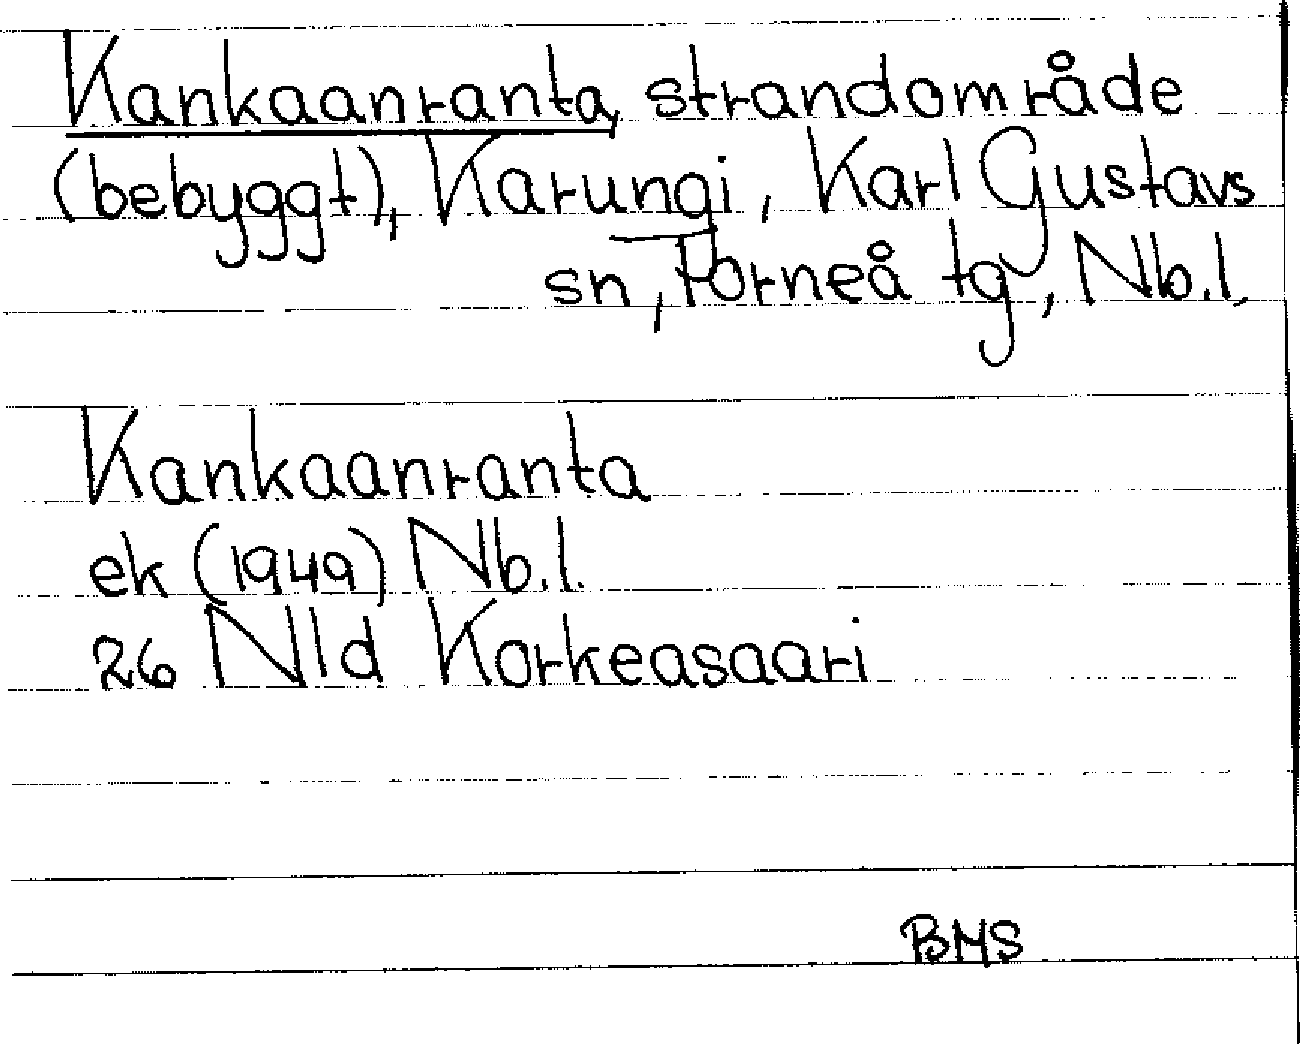 Kankaanranta, strandområde
(bebyggt), Karungi, Karl Gustavs
sn, Torneå tg, Nb.l.
Kankaanranta
ek (1949) Nb.l.
26 Nld Korkeasaari
BMS